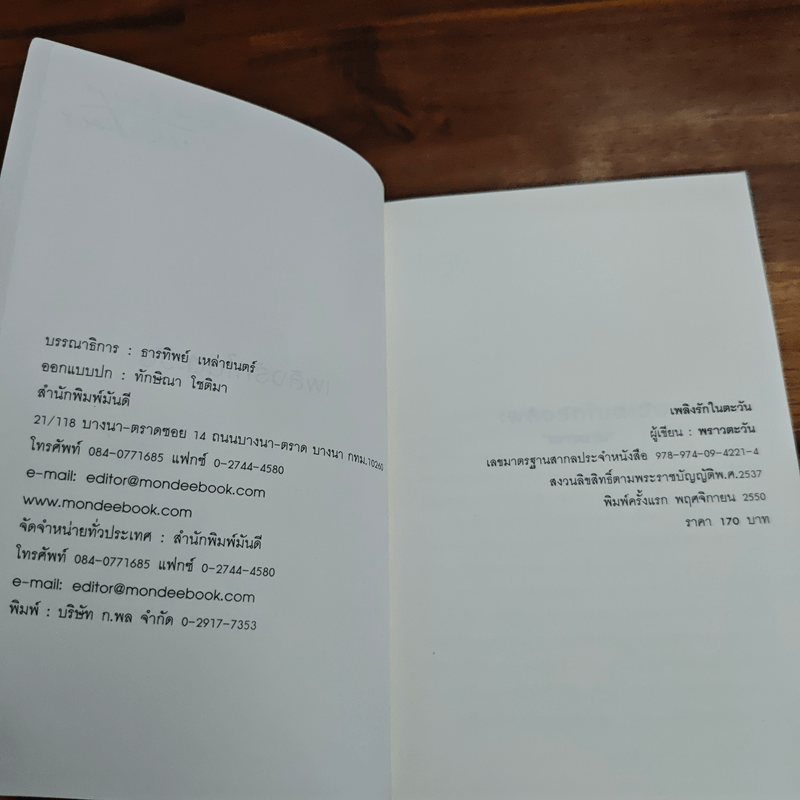 บรรณาธิการ : ธารทิพย์ เหล่ายนตร์
ออกแบบปก : ทักษิณา โชติมา
สำนักพิมพ์มันดี
21/118 บางนา-ตราดซอย 14 ถนนบางนา-ตราด บางนา กทม.10260
โทรศัพท์ 084-0771685 แฟกซ์ 0-2744-4580
e-mail: editor@mondeebook.com
www.mondeebook.com
จัดจำหน่ายทั่วประเทศ : สำนักพิมพ์มันดี
โทรศัพท์ 084-0771685 แฟกซ์ 0-2744-4580
e-mail: editor@mondeebook.com
พิมพ์ : บริษัท ก.พล จำกัด 0-2917-7353
เพลิงรักในตะวัน
ผู้เขียน : พราวตะวัน
เลขมาตรฐานสากลประจำหนังสือ 978-974-09-4221-4
สงวนลิขสิทธิ์ตามพระราชบัญญัติพ.ศ.2537
พิมพ์ครั้งแรก พฤศจิกายน 2550
ราคา 170 บาท